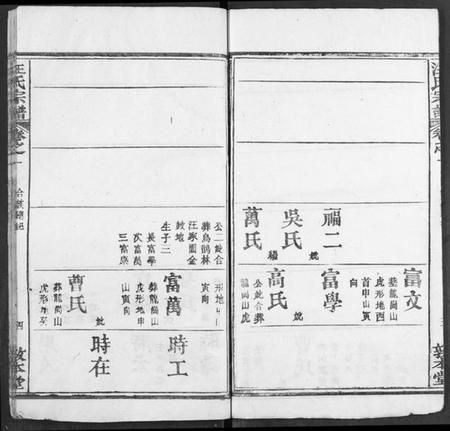 汪氏宗譜
卷之一
福二
娶
吳氏
繼
萬氏
富文
葬龍崗山
虎形地酉
首申山寅
向
富學
娶
高氏
公娶合葬
龍崗山虎
形地申山
寅向
公二娶合
葬烏鵲林
汪家園金
生子三
長富學
次富萬
三富康
富萬
葬龍崗山
虎形地申
山寅向
娶
曹氏
葬龍崗山
時工
時在
敦本堂
汪氏宗譜
卷之一
四
敦本堂